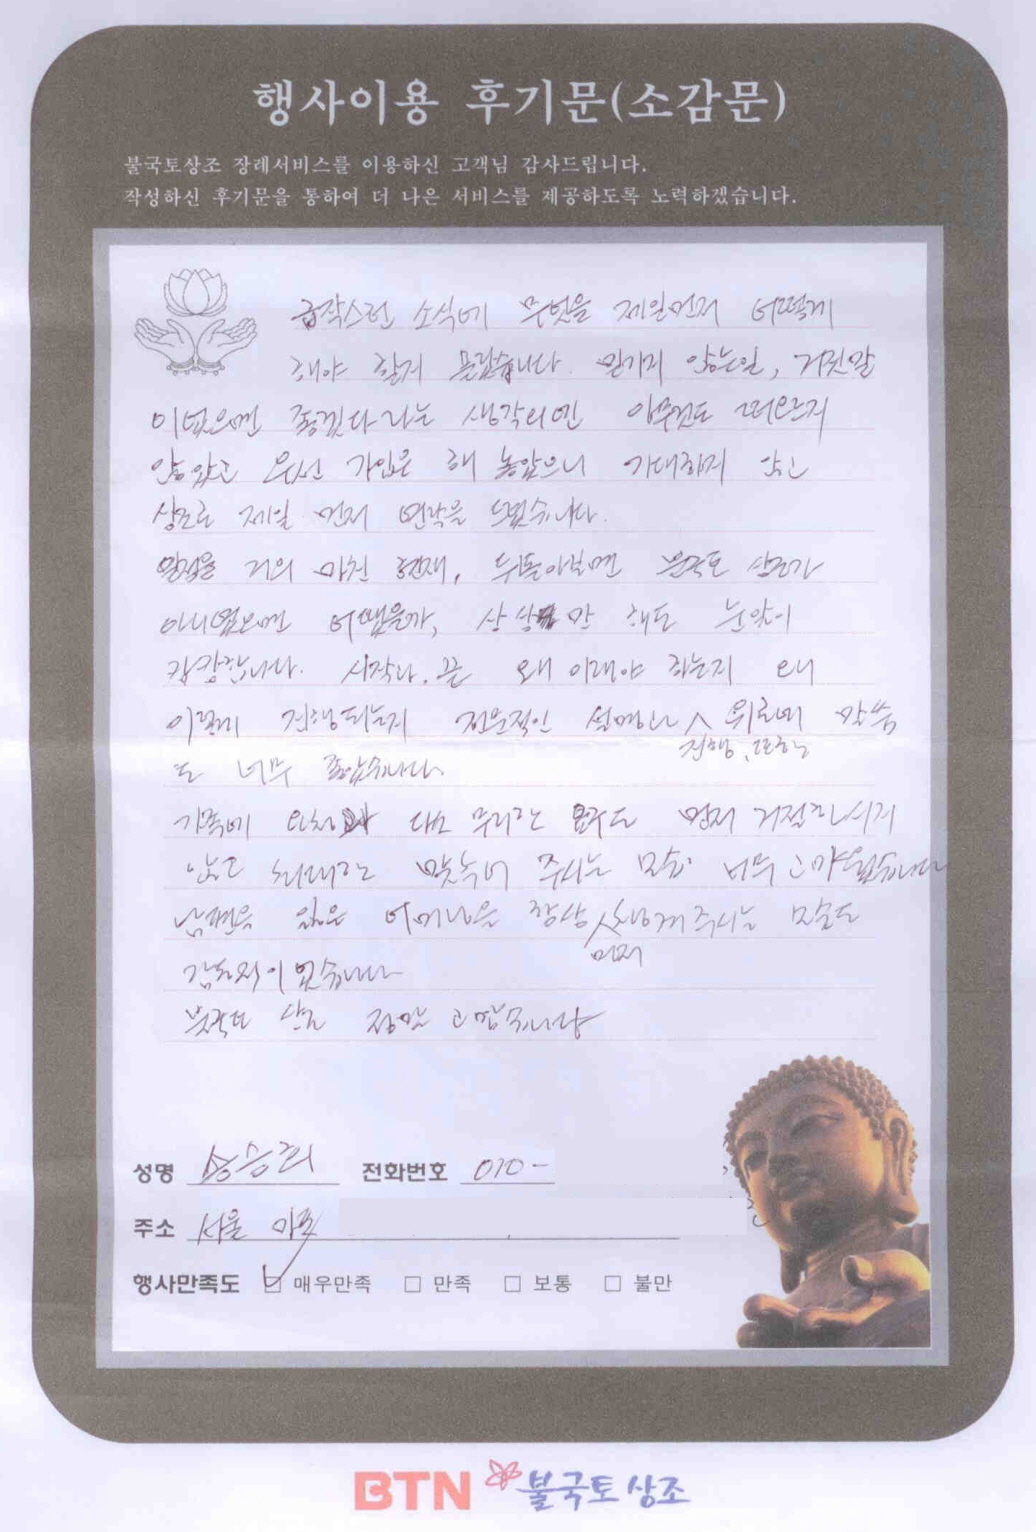 행사이용 후기문(소감문)
불국토상조 장례서비스를 이용하신 고객님 감사드립니다.
작성하신 후기문을 통하여 더 나은 서비스를 제공하도록 노력하겠습니다.
급작스런 소식에 무엇을 제일먼저 어떻게
해야 할지 몰랐습니다. 믿기지 않는일, 거짓말
이었으면 좋겠다라는 생각외엔 아무것도 떠오르지
않았고 우선 가입은 해 놓았으니 기대하지 않고
상조로 제일 먼저 연락을 드렸습니다.
일정을 거의 마친 현재, 뒤돌아보면 불국토 상조가
아니었으면 어땠을까, 상상만 해도 눈앞이
캄캄합니다. 시작과 끝 왜 이래야 하는지 왜
이렇게 진행되는지 전문적인 설명과 위로의 말씀
진행, 또한
도 너무 좋았습니다.
가족의 요청 다소 무리한 요구도 먼저 거절하시지
않고 최대한 맞춰 주시는 모습 너무 고마웠습니다
남편을 잃은 어머님을 항상 챙겨주시는 모습도
먼저
감동적이었습니다
불국토 상조 정말 고맙습니다
성명 송승희 전화번호 010-
주소 서울 마포
행사만족도 ☑ 매우만족 □ 만족 □ 보통 □ 불만
BTN 불국토상조